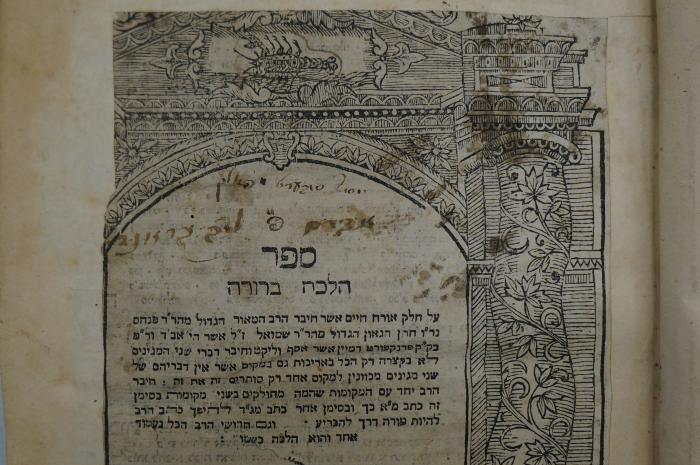 ספר
הלכה ברורה
על חלק אורח חיים אשר חיבר הרב המאור הגדול מהר״ר פנחס
נר״ו חתן הגאון הגדול מהר״ר שמואל ז״ל אשר הי׳ אב״ד ור״מ
בק״ק פרנקפורט דמיין אשר אסף וליקט וחיבר דברי שני המגינים
ללא בקצרה רק הכל באריכות גם במקום אשר אין דבריהם של
שני מגינים מכוונין למקום אחד רק סותרים זה את זה : חיבר
הרב יחד עם המקומות שהמה מחולקים בשני מקומות בסימן
זה כתב מ״א כך ובסימן אחר כתב מג״ד להיפך כתב הרב
להיות מורה דרך להכריע וגם חדושי הרב הכל בעמוד
אחד והוא הלכה כשמו :